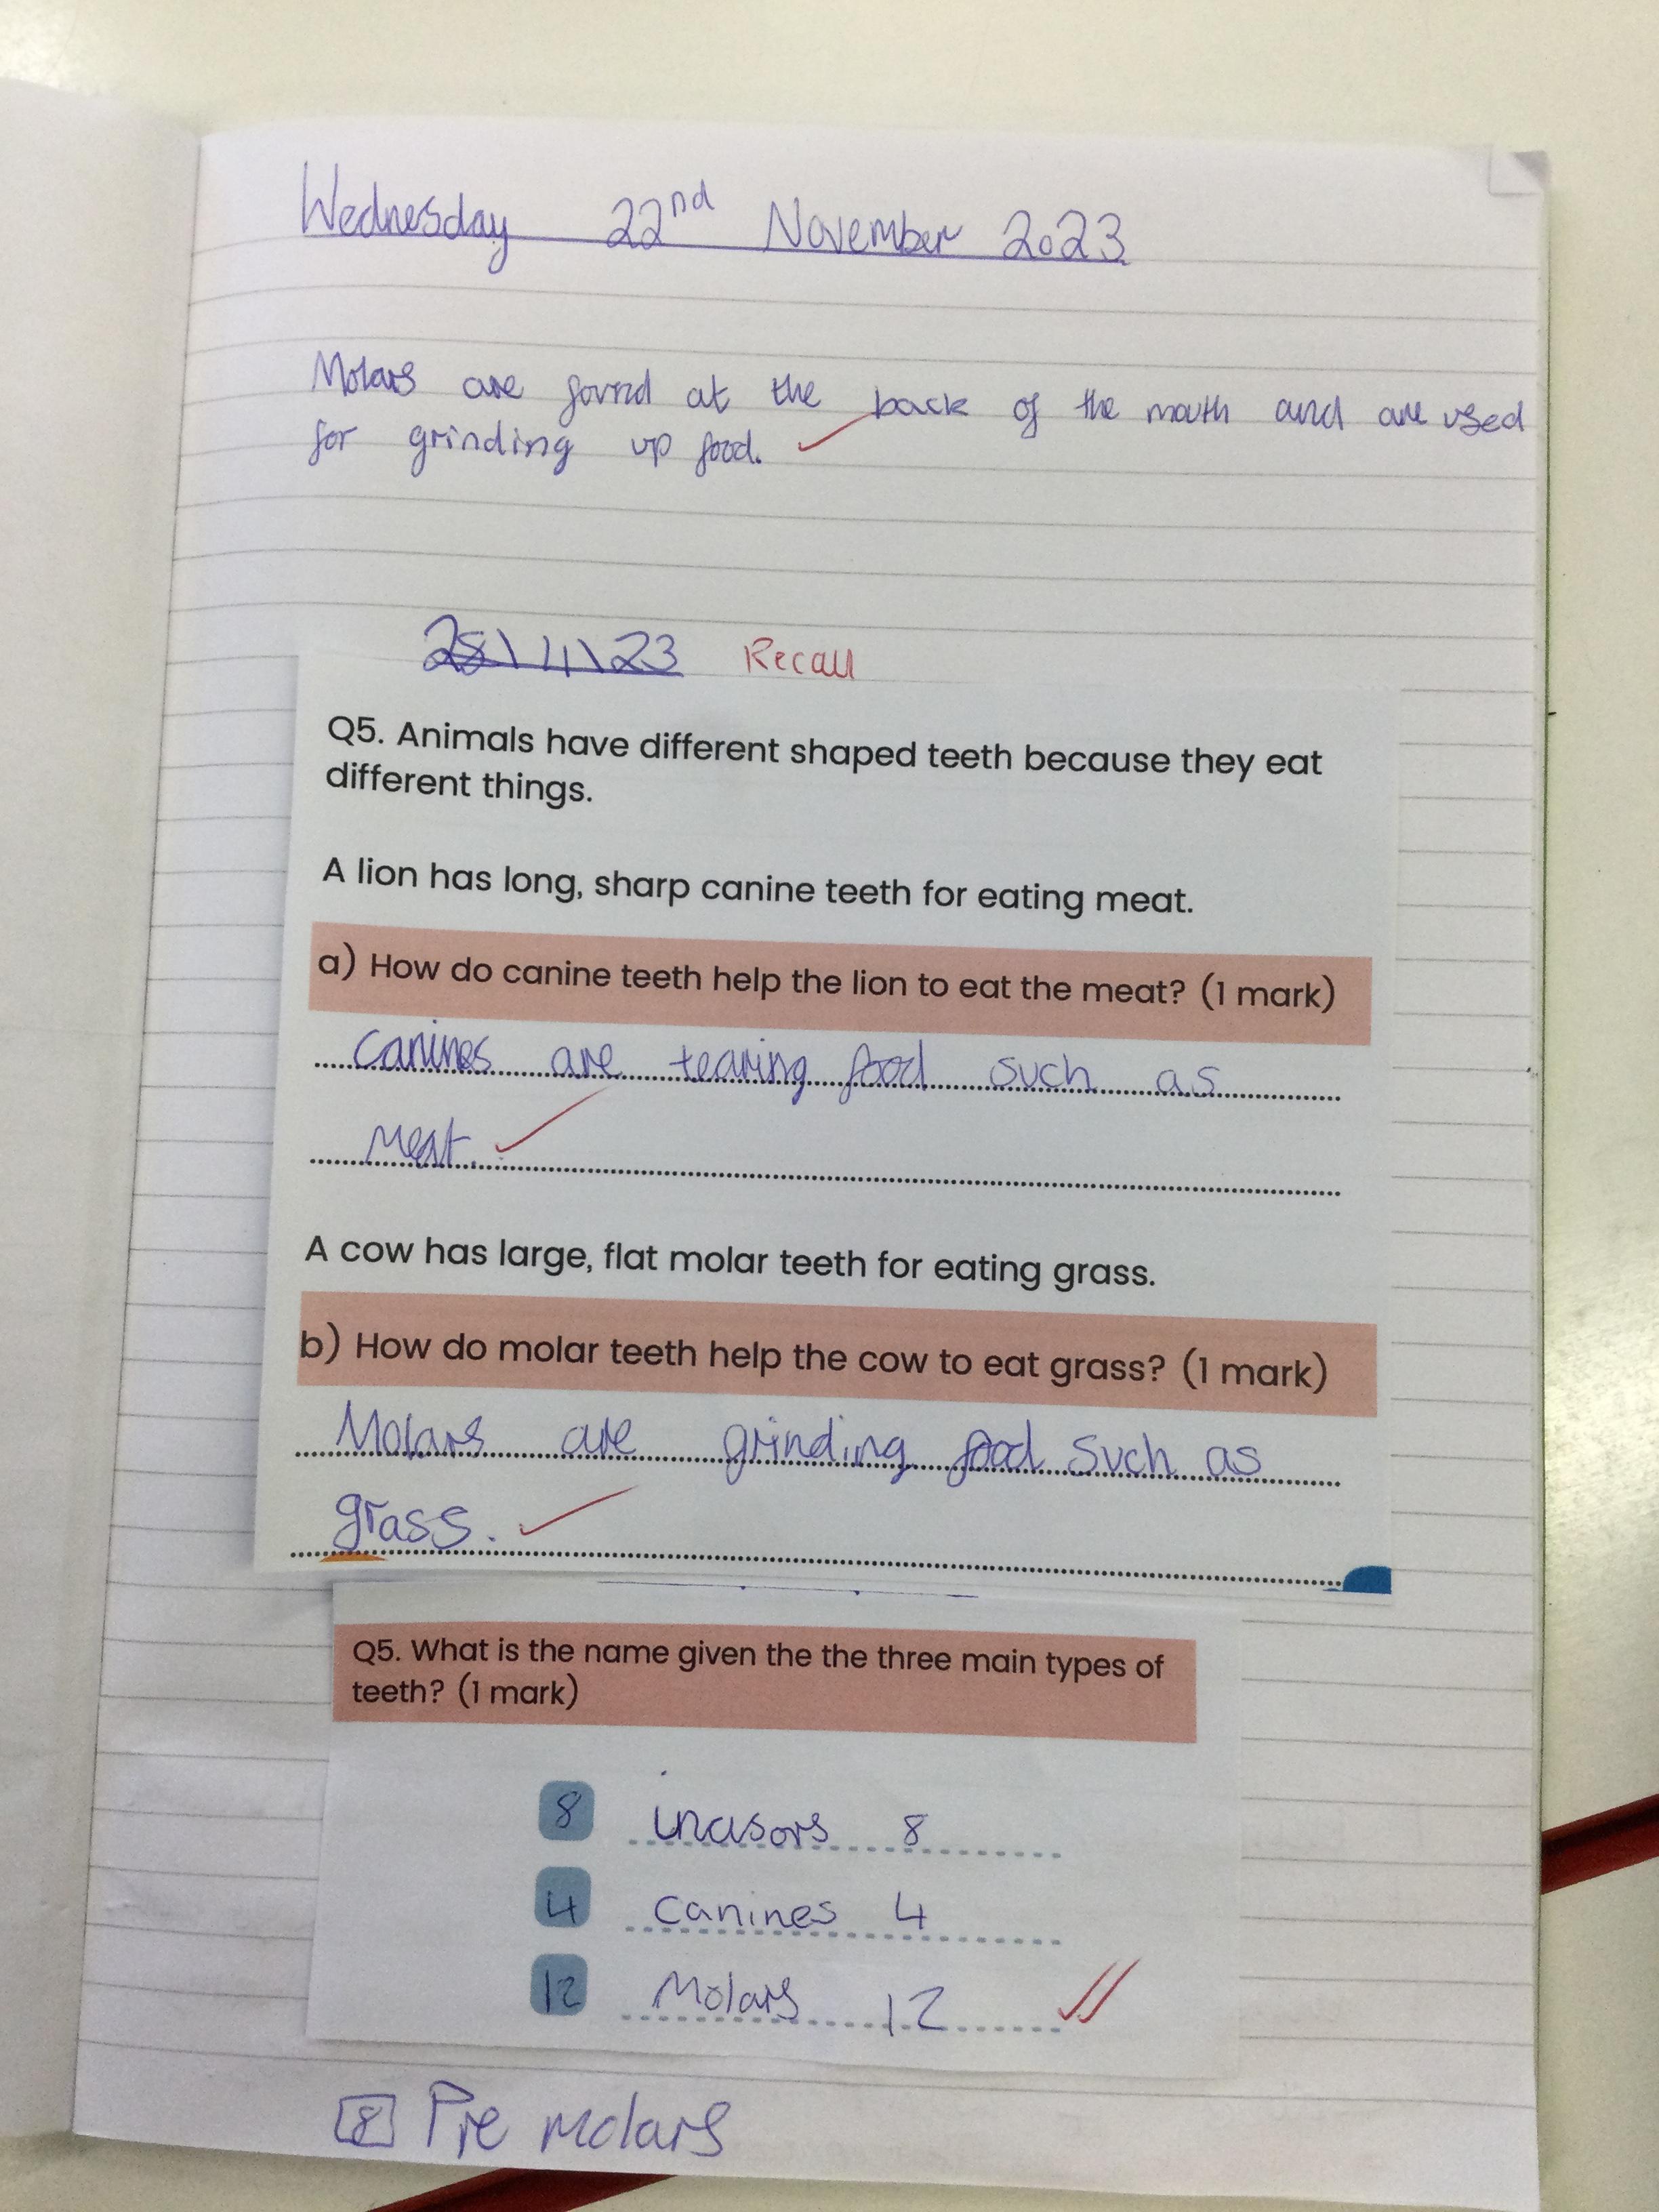 Wednesday 22nd November 2023
Molars are found at the back of the mouth and are used
for grinding up food.
28\11\23 Recall
Q5. Animals have different shaped teeth because they eat
different things.
A lion has long, sharp canine teeth for eating meat.
a) How do canine teeth help the lion to eat the meat? (1 mark)
Canines are tearing food such as
meat.
A cow has large, flat molar teeth for eating grass.
b) How do molar teeth help the cow to eat grass? (1 mark)
Molars are grinding food such as
grass.
Q5. What is the name given the the three main types of
teeth? (1 mark)
8 incisors 8
4 canines 4
12 Molars 12
8 Pre molars